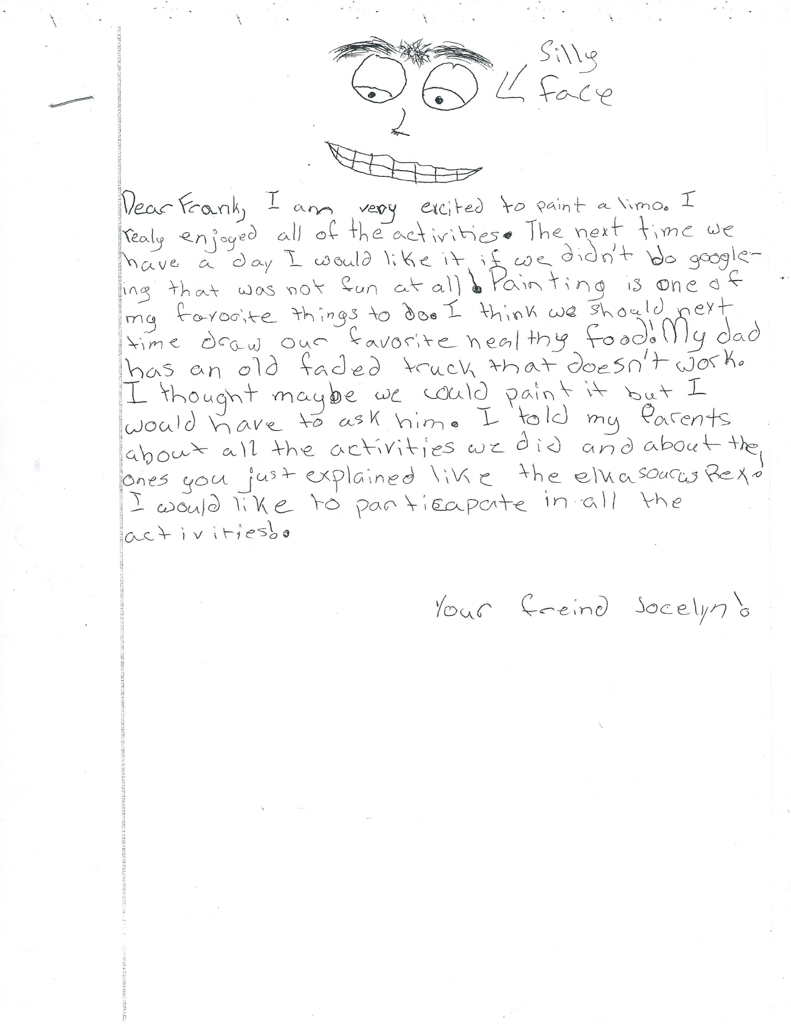 Silly
face
Dear Frank, I am very excited to paint a limo. I
realy enjoyed all of the activities. The next time we
have a day I would like it if we didn't do google-
ing that was not fun at all! Painting is one of
my favorite things to do. I think we should next
time draw our favorite healthy food! My dad
has an old faded truck that doesn't work.
I thought maybe we could paint it but I
would have to ask him. I told my Parents
about all the activities we did and about the
ones you just explained like the elkasourus Rex!
I would like to particapate in all the
activities!.
Your freind Jocelyn!